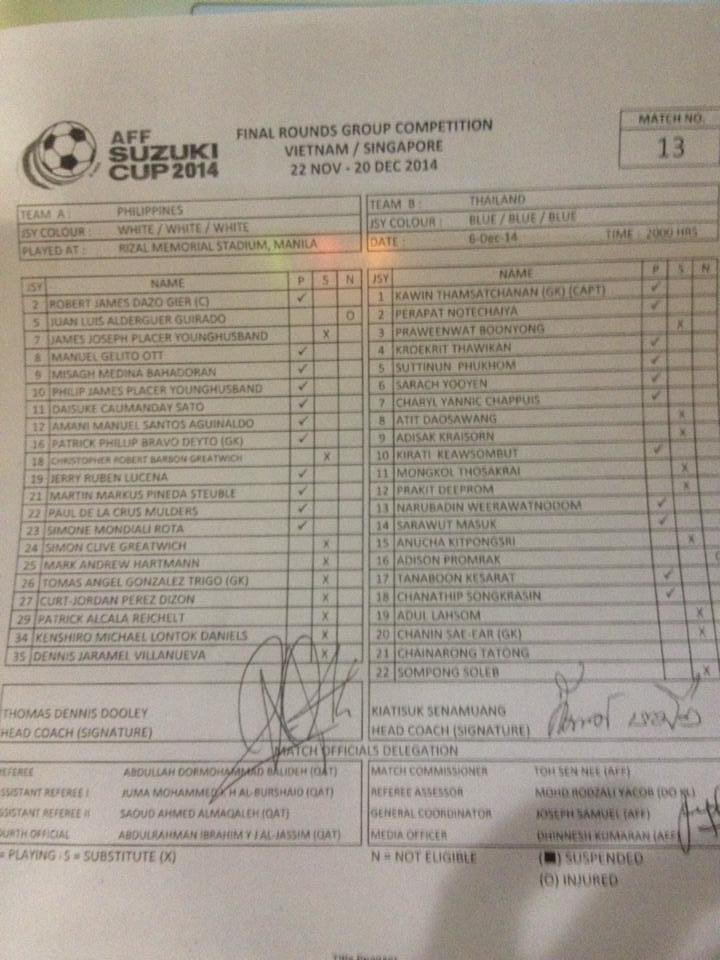 AFF
SUZUKI
CUP 2014
FINAL ROUNDS GROUP COMPETITION
VIETNAM / SINGAPORE
22 NOV - 20 DEC 2014
MATCH NO.
13
TEAM A : PHILIPPINES
JSY COLOUR : WHITE / WHITE / WHITE
PLAYED AT : RIZAL MEMORIAL STADIUM, MANILA
TEAM B : THAILAND
JSY COLOUR : BLUE / BLUE / BLUE
DATE : 6-Dec-14 TIME : 2000 HRS
JSY NAME P S N
2 ROBERT JAMES DAZO GIER (C) ✓
5 JUAN LUIS ALDERGUER GUIRADO O
7 JAMES JOSEPH PLACER YOUNGHUSBAND X
8 MANUEL GELITO OTT ✓
9 MISAGH MEDINA BAHADORAN ✓
10 PHILIP JAMES PLACER YOUNGHUSBAND ✓
11 DAISUKE CAUMANDAY SATO ✓
12 AMANI MANUEL SANTOS AGUINALDO ✓
16 PATRICK PHILLIP BRAVO DEYTO (GK) ✓
18 CHRISTOPHER ROBERT BARBON GREATWICH X
19 JERRY RUBEN LUCENA ✓
21 MARTIN MARKUS PINEDA STEUBLE ✓
22 PAUL DE LA CRUS MULDERS ✓
23 SIMONE MONDIALI ROTA ✓
24 SIMON CLIVE GREATWICH X
25 MARK ANDREW HARTMANN X
26 TOMAS ANGEL GONZALEZ TRIGO (GK) X
27 CURT-JORDAN PEREZ DIZON X
29 PATRICK ALCALA REICHELT X
34 KENSHIRO MICHAEL LONTOK DANIELS X
35 DENNIS JARAMEL VILLANUEVA X
JSY NAME P S N
1 KAWIN THAMSATCHANAN (GK) (CAPT) ✓
2 PERAPAT NOTECHAIYA ✓
3 PRAWEENWAT BOONYONG X
4 KROEKRIT THAWIKAN ✓
5 SUTTINUN PHUKHOM ✓
6 SARACH YOOYEN ✓
7 CHARYL YANNIC CHAPPUIS ✓
8 ATIT DAOSAWANG X
9 ADISAK KRAISORN X
10 KIRATI KEAWSOMBUT ✓
11 MONGKOL THOSAKRAI X
12 PRAKIT DEEPROM X
13 NARUBADIN WEERAWATNODOM ✓
14 SARAWUT MASUK ✓
15 ANUCHA KITPONGSRI X
16 ADISON PROMRAK
17 TANABOON KESARAT ✓
18 CHANATHIP SONGKRASIN ✓
19 ADUL LAHSOM X
20 CHANIN SAE-EAR (GK) X
21 CHAINARONG TATONG
22 SOMPONG SOLEB X
THOMAS DENNIS DOOLEY
HEAD COACH (SIGNATURE)
KIATISUK SENAMUANG
HEAD COACH (SIGNATURE)
MATCH OFFICIALS DELEGATION
REFEREE ABDULLAH DORMOHAMMAD BALIDEH (QAT)
ASSISTANT REFEREE I JUMA MOHAMMED H AL-BURSHAID (QAT)
ASSISTANT REFEREE II SAOUD AHMED ALMAQALEH (QAT)
FOURTH OFFICIAL ABDULRAHMAN IBRAHIM Y J AL-JASSIM (QAT)
MATCH COMMISSIONER TOH SEN NEE (AFF)
REFEREE ASSESSOR MOHD RODZALI YACOB
GENERAL COORDINATOR JOSEPH SAMUEL (AFF)
MEDIA OFFICER DHINNESH KUMARAN (AFF)
= PLAYING : S = SUBSTITUTE (X)
N = NOT ELIGIBLE (■) SUSPENDED
(O) INJURED